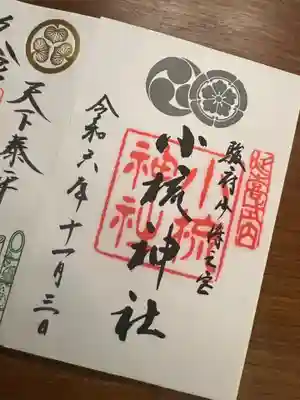 延喜式内
駿府少将之宮
小梳神社
小梳神社
令和六年十一月三日
天下泰平